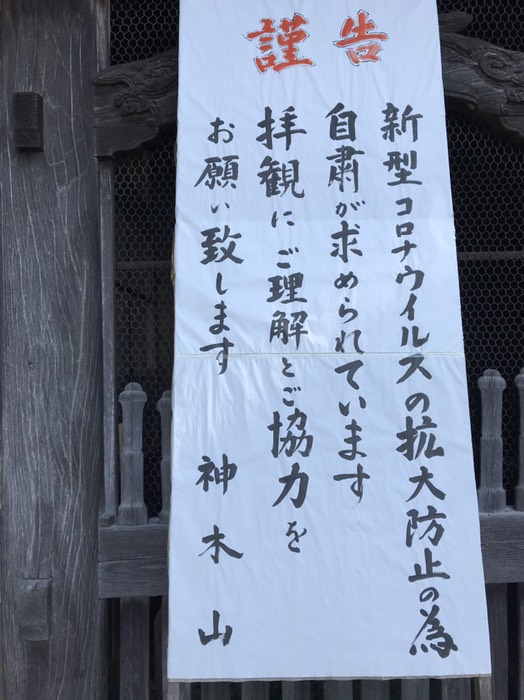 謹告
新型コロナウイルスの拡大防止の為
自粛が求められています
拝観にご理解とご協力を
お願い致します 神木山